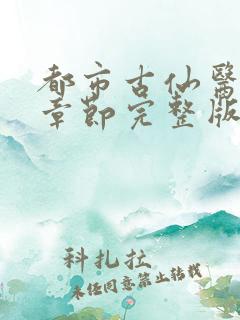 都市古仙醫
章節完整版
科扎拉
未任同意禁止转载